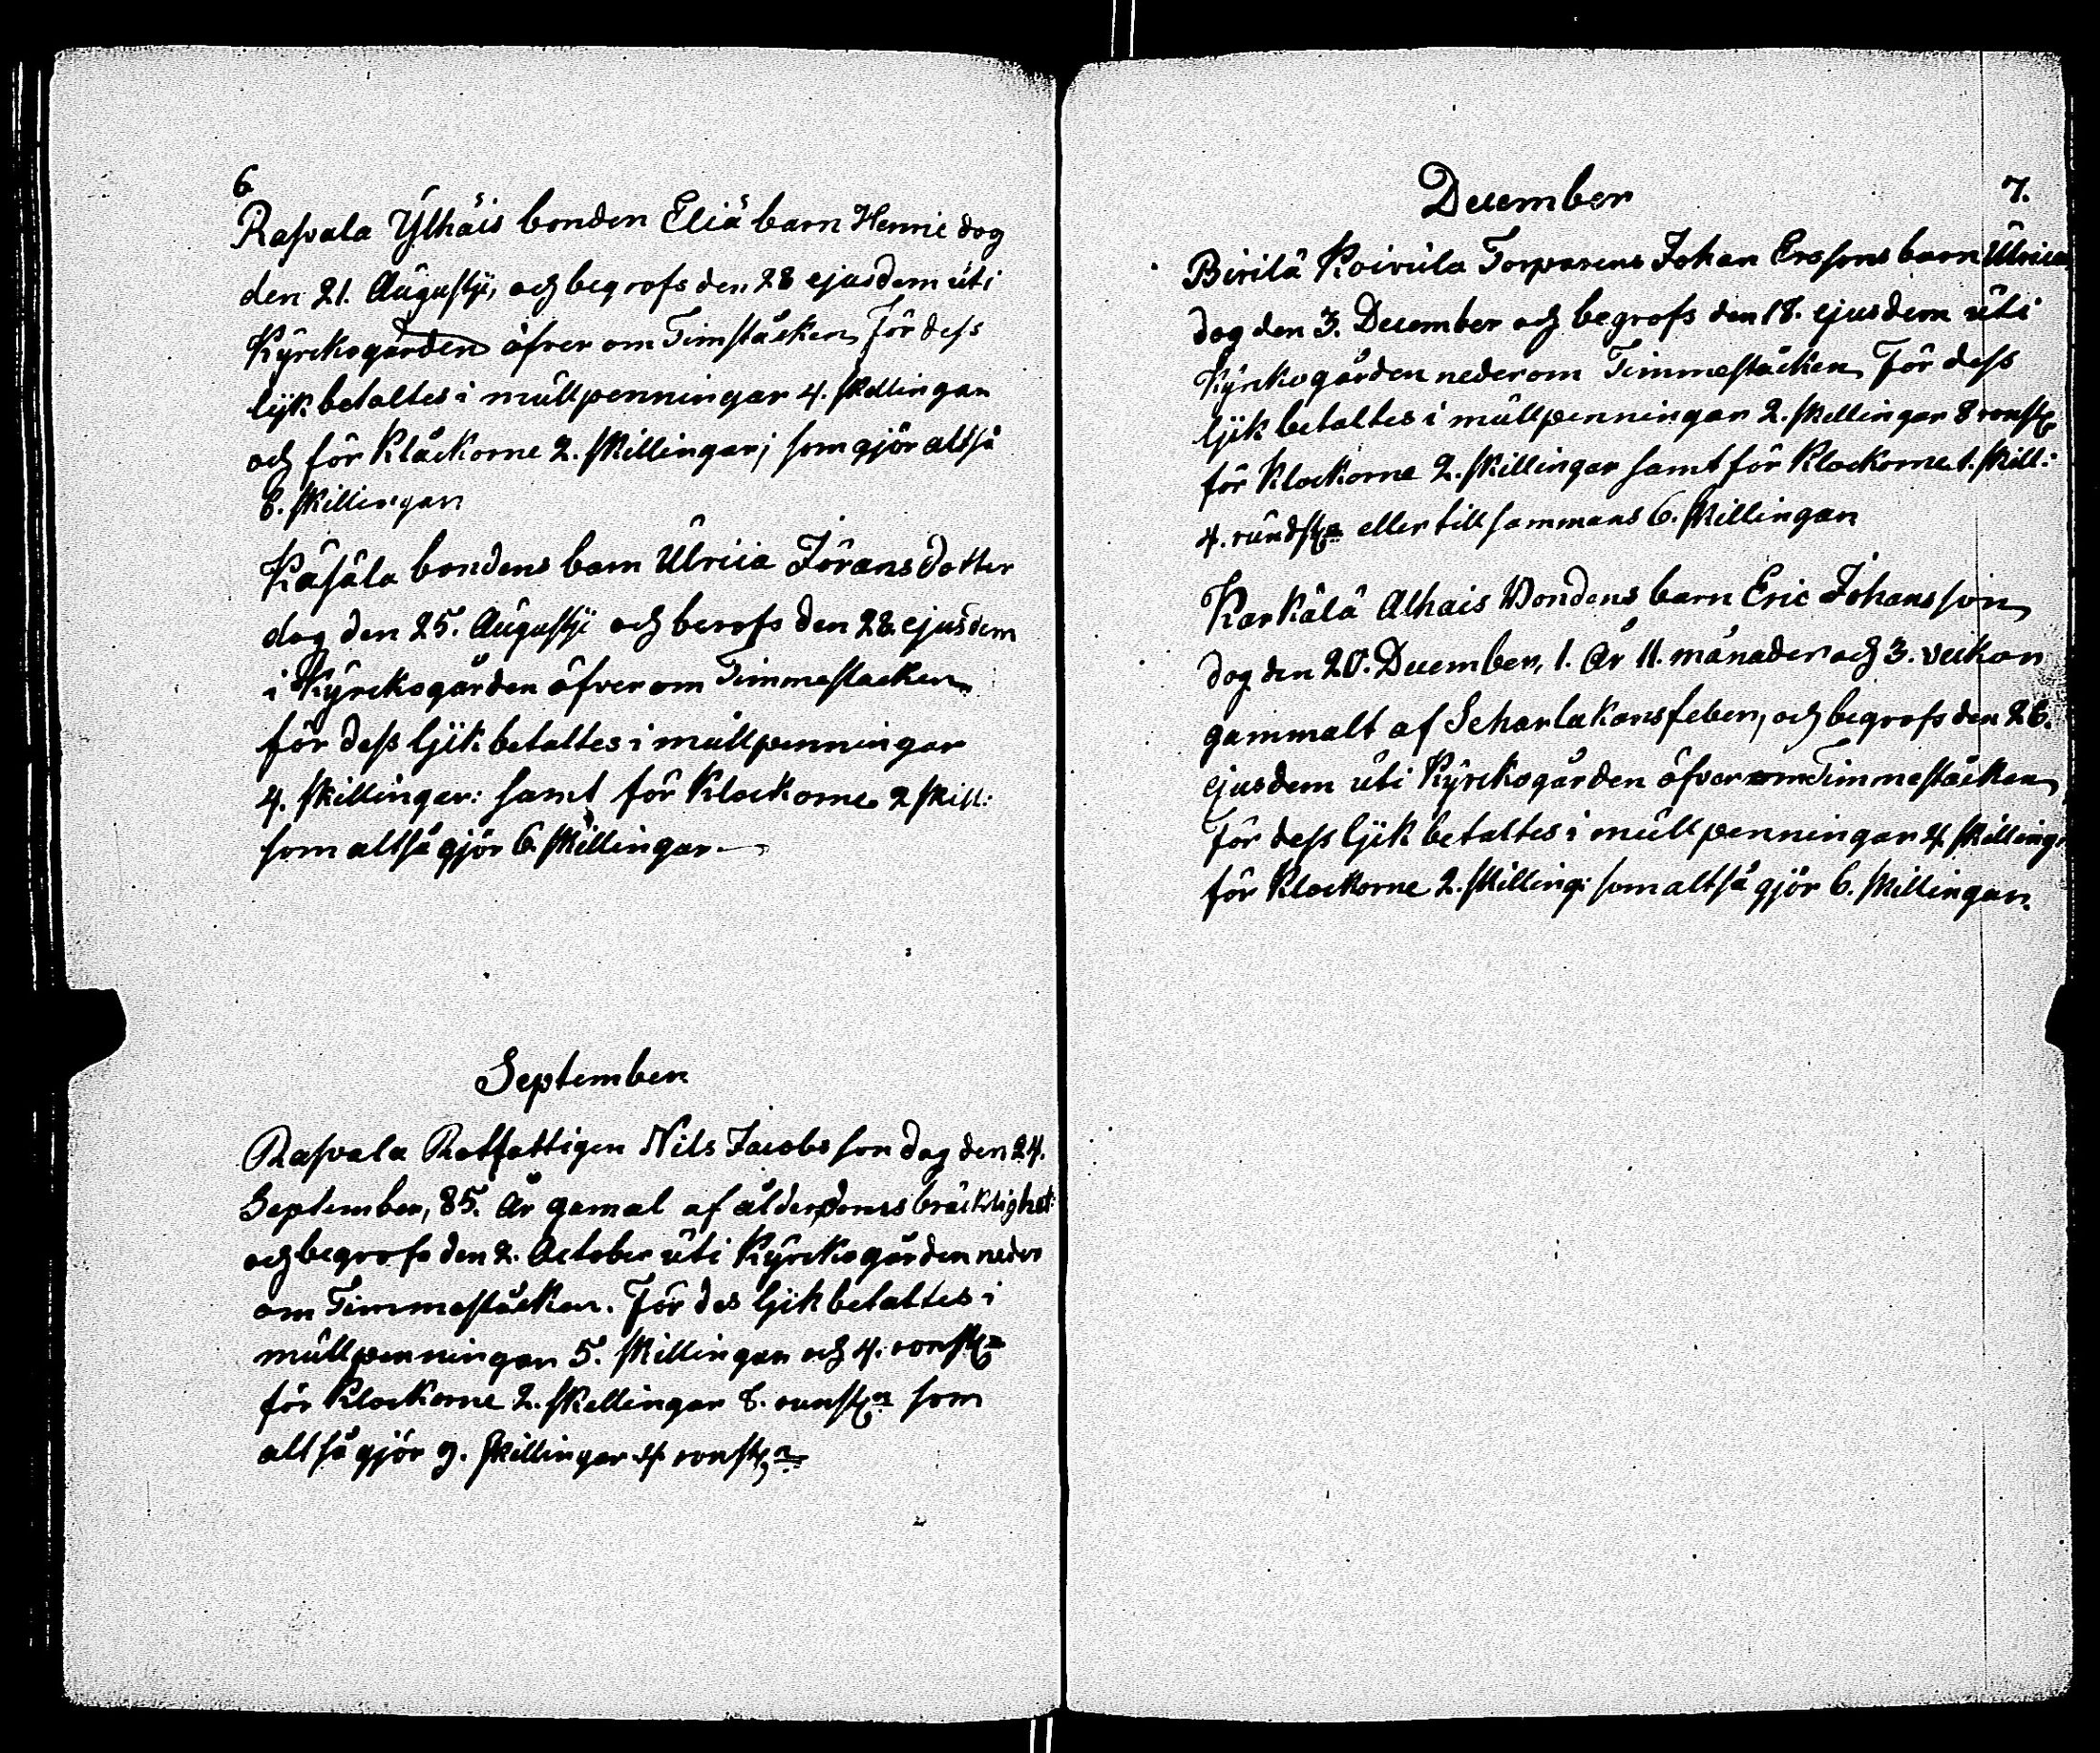 6
Rasvala Ylhäis bonden Eliä barn Henric dog
den 21. Augustji, och begrofs den 28 ejusdem uti
Kyrckogården öfver om Timståcken, För dess
lijk betaltes i mullpenningar 4. skillingar
och för Klåckorne 2. skillingar; som gjör altså
6. skillingar
Kåsåla bondens barn Ulrica Jöransdotter
dog den 25. Augustji och berofs den 28 ejusdem
i Kyrckogården öfver om Timmestacken
för dess lijk betaltes i mullpenningar
4. skillingar: samt för Klockorne 2 skill:
som altså gjör 6. skillingar
September
Rasvala Rotfattigen Nils Jacobsson dog den 24.
September, 85. år gamal af ålderdoms bräcklighet
och begrofs den 2. October uti Kyrckogården neder
om Timmeståcken. För des lijk betaltes i
mullpenningar 5. skillingar och 4. ronst:r
för Klockorne 2. skellingar 8. runst:r som
altså gjör 9. skillingar 4 ronst:r
7.
December
Birilä Koivula Torparens Johan Erssons barn Ulrica
dog den 3. December och begrofs den 18. ejusdem uti
Kyrckogården nederom Timmeståcken, För dess
lijk betaltes i mullpenningar 2. skellingar 8 ronst:r
för Klockorne 2. skillingar samt för Klockorne 1. skill:
4. rundst:r eller tillsammans 6. skillingar
Karkälä Alhais Bondens barn Eric Johansson
dog den 20. December, 1. år 11. månader och 3. veckor
gammalt af Scharlakansfeber, och begrofs den 26.
ejusdem uti Kyrckogården öfver om Timmeståcken
För dess lijk betaltes i mullpenningar 4. skilling:
för Klockorne 2. skilling: som altså gjör 6. skillingar.